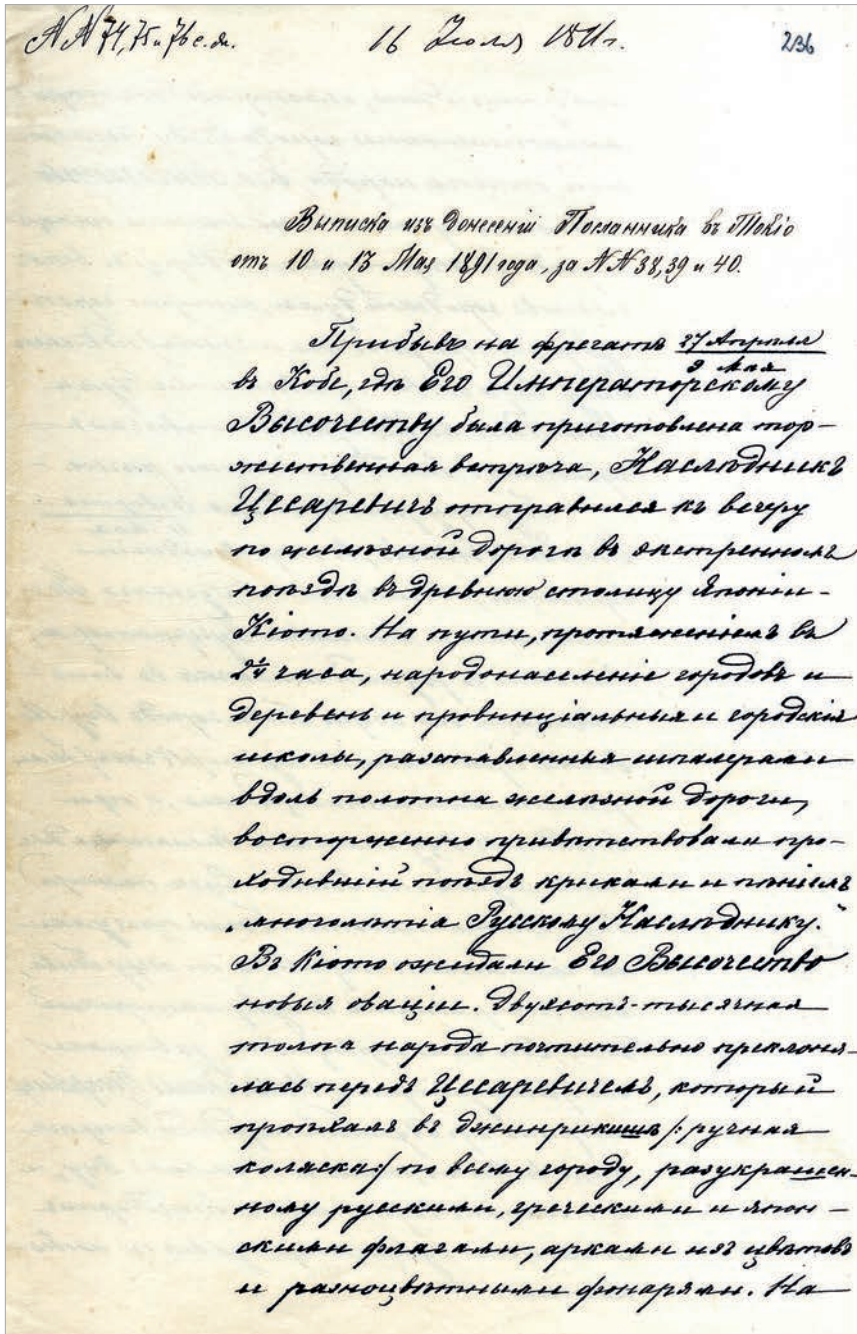 NN 74, 75 и 76 с. дл. 16 Июля 1891 г. 236
Выписка изъ донесенiй Посланника въ Токiо
отъ 10 и 13 Мая 1891 года, за NN 38, 39 и 40.
Прибывъ на фрегатѣ 27 Апрѣля
9 Мая
въ Кобе, гдѣ Его Императорскому
Высочеству была приготовлена тор-
жественная встрѣча, Наслѣдникъ
Цесаревичъ отправился къ вечеру
по желѣзной дорогѣ въ экстренномъ
поѣздѣ въ древнюю столицу Японiи -
Кiото. На пути, протяженiемъ въ
2¼ часа, народонаселенiе городовъ и
деревень и провинцiальныя и городскiя
школы, разставленныя шпалерами
вдоль полотна желѣзной дороги,
восторженно привѣтствовали про-
ходившiй поѣздъ криками и пѣнiемъ
„многолѣтiя Русскому Наслѣднику."
Въ Кiото ожидали Его Высочество
новыя овацiи. Двухсотъ-тысячная
толпа народа почтительно преклоня-
лась передъ Цесаревичемъ, который
проѣхалъ въ джинрикишѣ /:ручная
коляска:/ по всему городу, разукрашен-
ному русскими, греческими и япон-
скими флагами, арками изъ цвѣтовъ
и разноцвѣтными фонарями. На